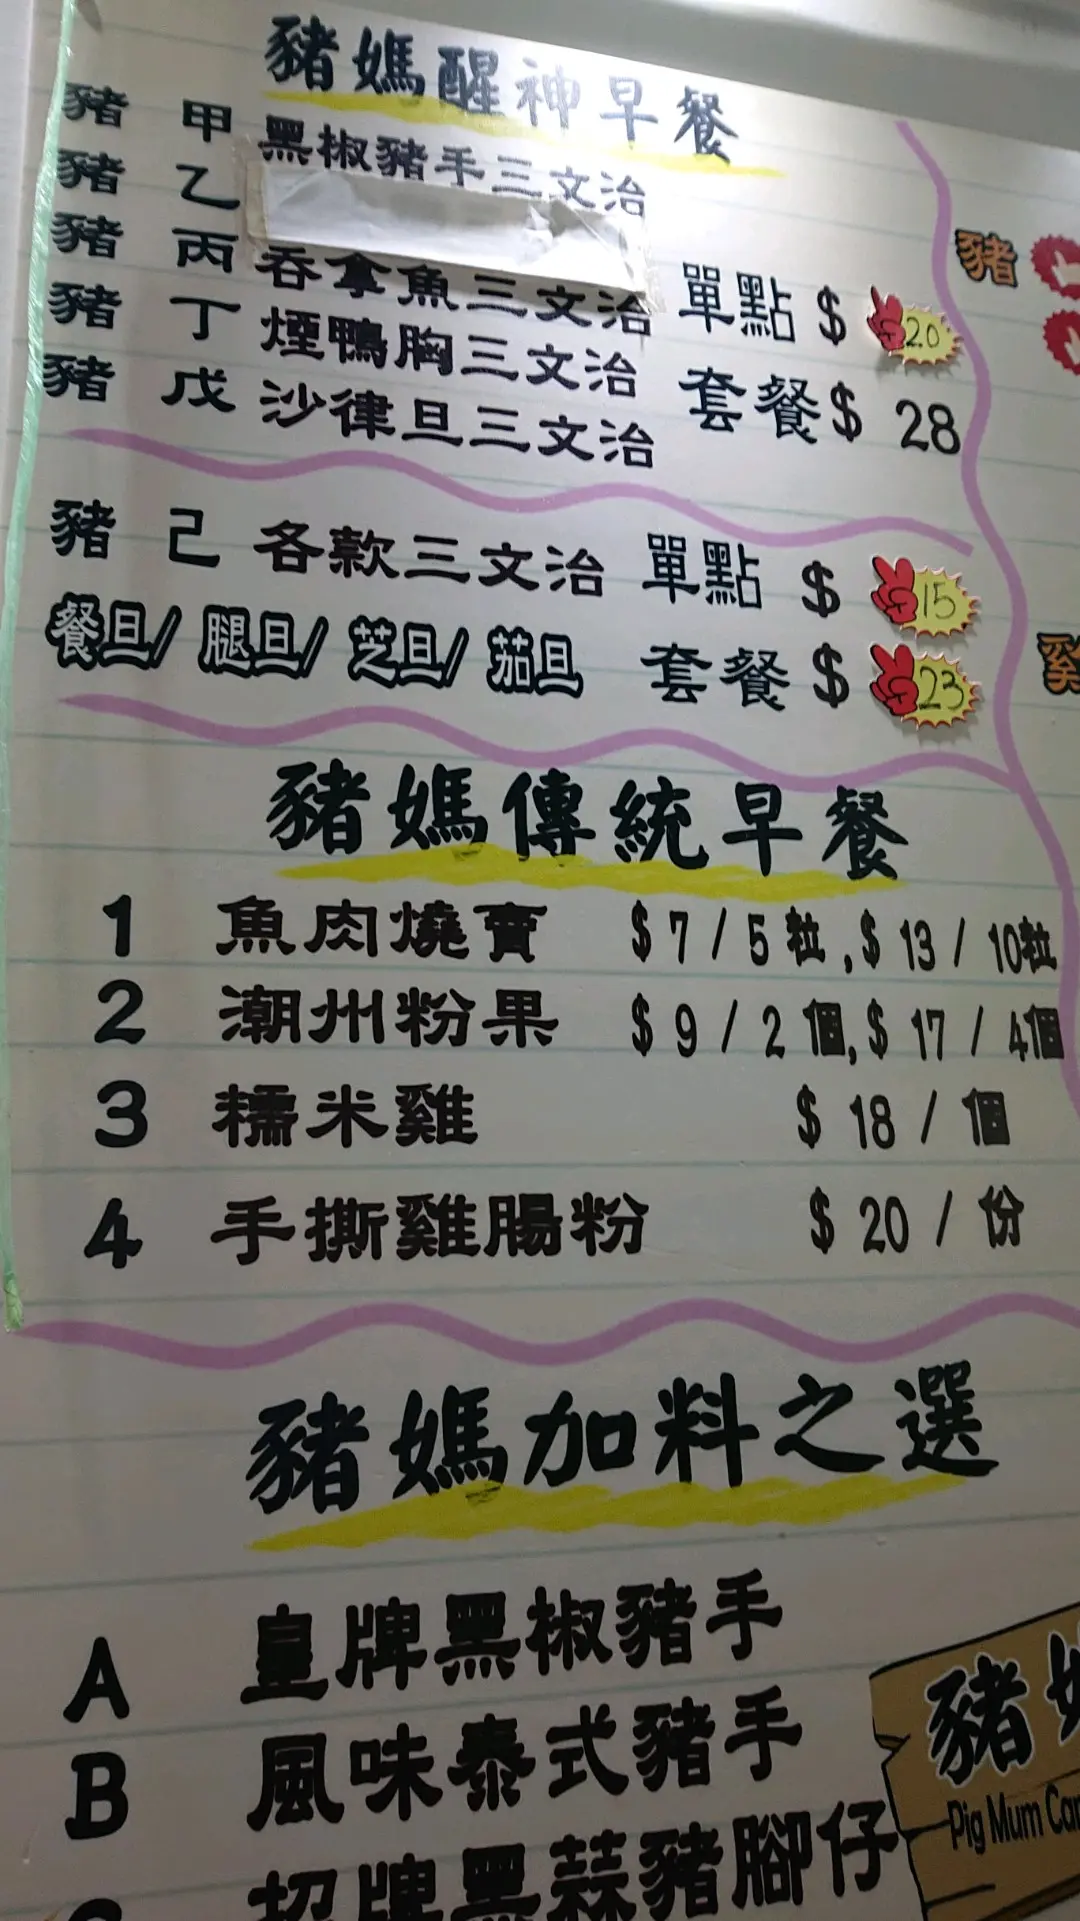 豬媽醒神早餐
豬 甲 黑椒豬手三文治
豬 乙
豬 丙 吞拿魚三文治 單點 $ 20
豬 丁 煙鴨胸三文治 套餐 $ 28
豬 戊 沙律旦三文治
豬 己 各款三文治 單點 $ 15
餐旦/ 腿旦/ 芝旦/ 茄旦 套餐 $ 23
豬媽傳統早餐
1 魚肉燒賣 $ 7 / 5 粒 , $ 13 / 10粒
2 潮州粉果 $ 9 / 2 個, $ 17 / 4個
3 糯米雞 $ 18 / 個
4 手撕雞腸粉 $ 20 / 份
豬媽加料之選
A 皇牌黑椒豬手
B 風味泰式豬手
招牌黑蒜豬腳仔
豬
豬
Pig Mum